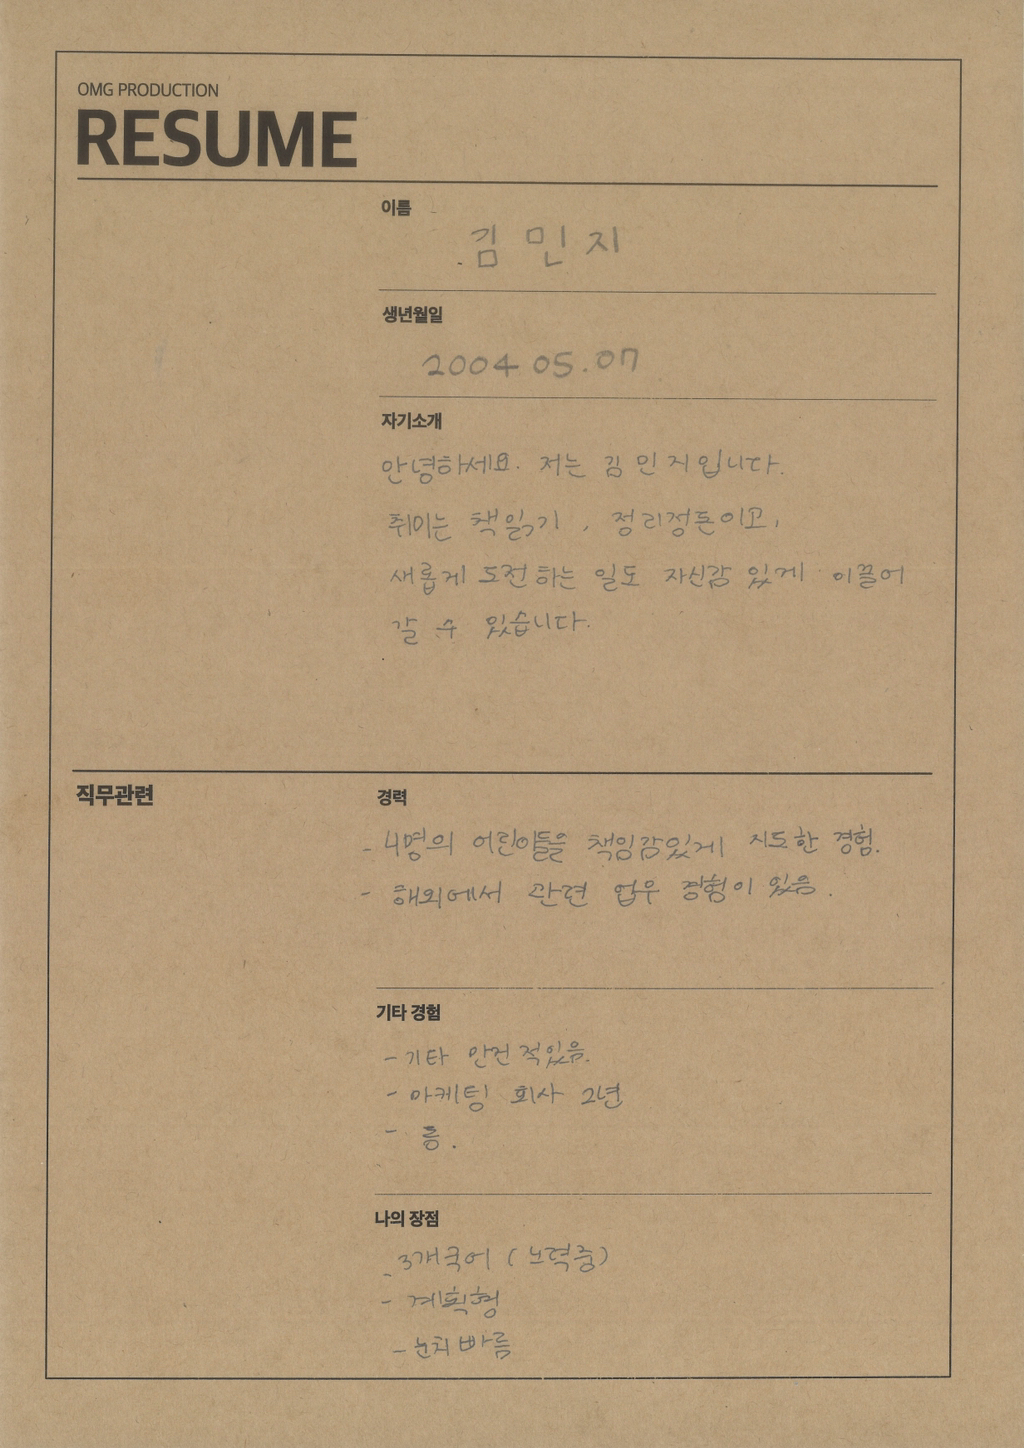 OMG PRODUCTION
RESUME
이름
김민지
생년월일
2004 05.07
자기소개
안녕하세요. 저는 김민지입니다.
취미는 책읽기, 정리정돈이고,
새롭게 도전하는 일도 자신감 있게 이끌어
갈 수 있습니다.
직무관련
경력
- 4명의 어린이들을 책임감있게 지도한 경험.
- 해외에서 관련 업무 경험이 있음.
기타 경험
- 기타 안친 적있음.
- 마케팅 회사 2년
나의 장점
- 3개국어 (노력중)
- 계획형
- 눈치 빠름